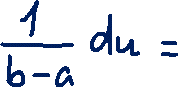 \frac{1}{b-a} du =